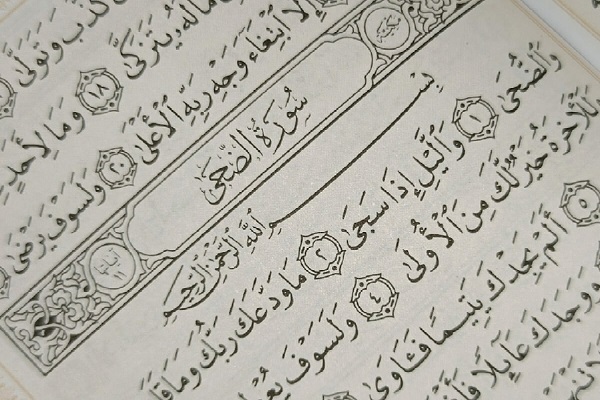 كَذَّبَ وَتَوَلَّىٰ
مَالَهُۥ يَتَزَكَّىٰ ١٨ وَمَا لِأَحَدٍ
إِلَّا ٱبْتِغَآءَ وَجْهِ رَبِّهِ ٱلْأَعْلَىٰ ٢٠ وَلَسَوْفَ يَرْضَىٰ
سُورَةُ الضُّحَىٰ
بِسْمِ ٱللَّهِ ٱلرَّحْمَٰنِ ٱلرَّحِيمِ
وَٱلضُّحَىٰ ١ وَٱلَّيْلِ إِذَا سَجَىٰ ٢ مَا وَدَّعَكَ رَبُّكَ وَمَا قَلَ
وَلَلْءَاخِرَةُ خَيْرٌ لَّكَ مِنَ ٱلْأُولَىٰ ٤ وَلَسَوْفَ
٥ أَلَمْ يَجِدْكَ يَتِيمًا فَـَٔاوَىٰ
وَوَجَدَكَ عَآئِلًا